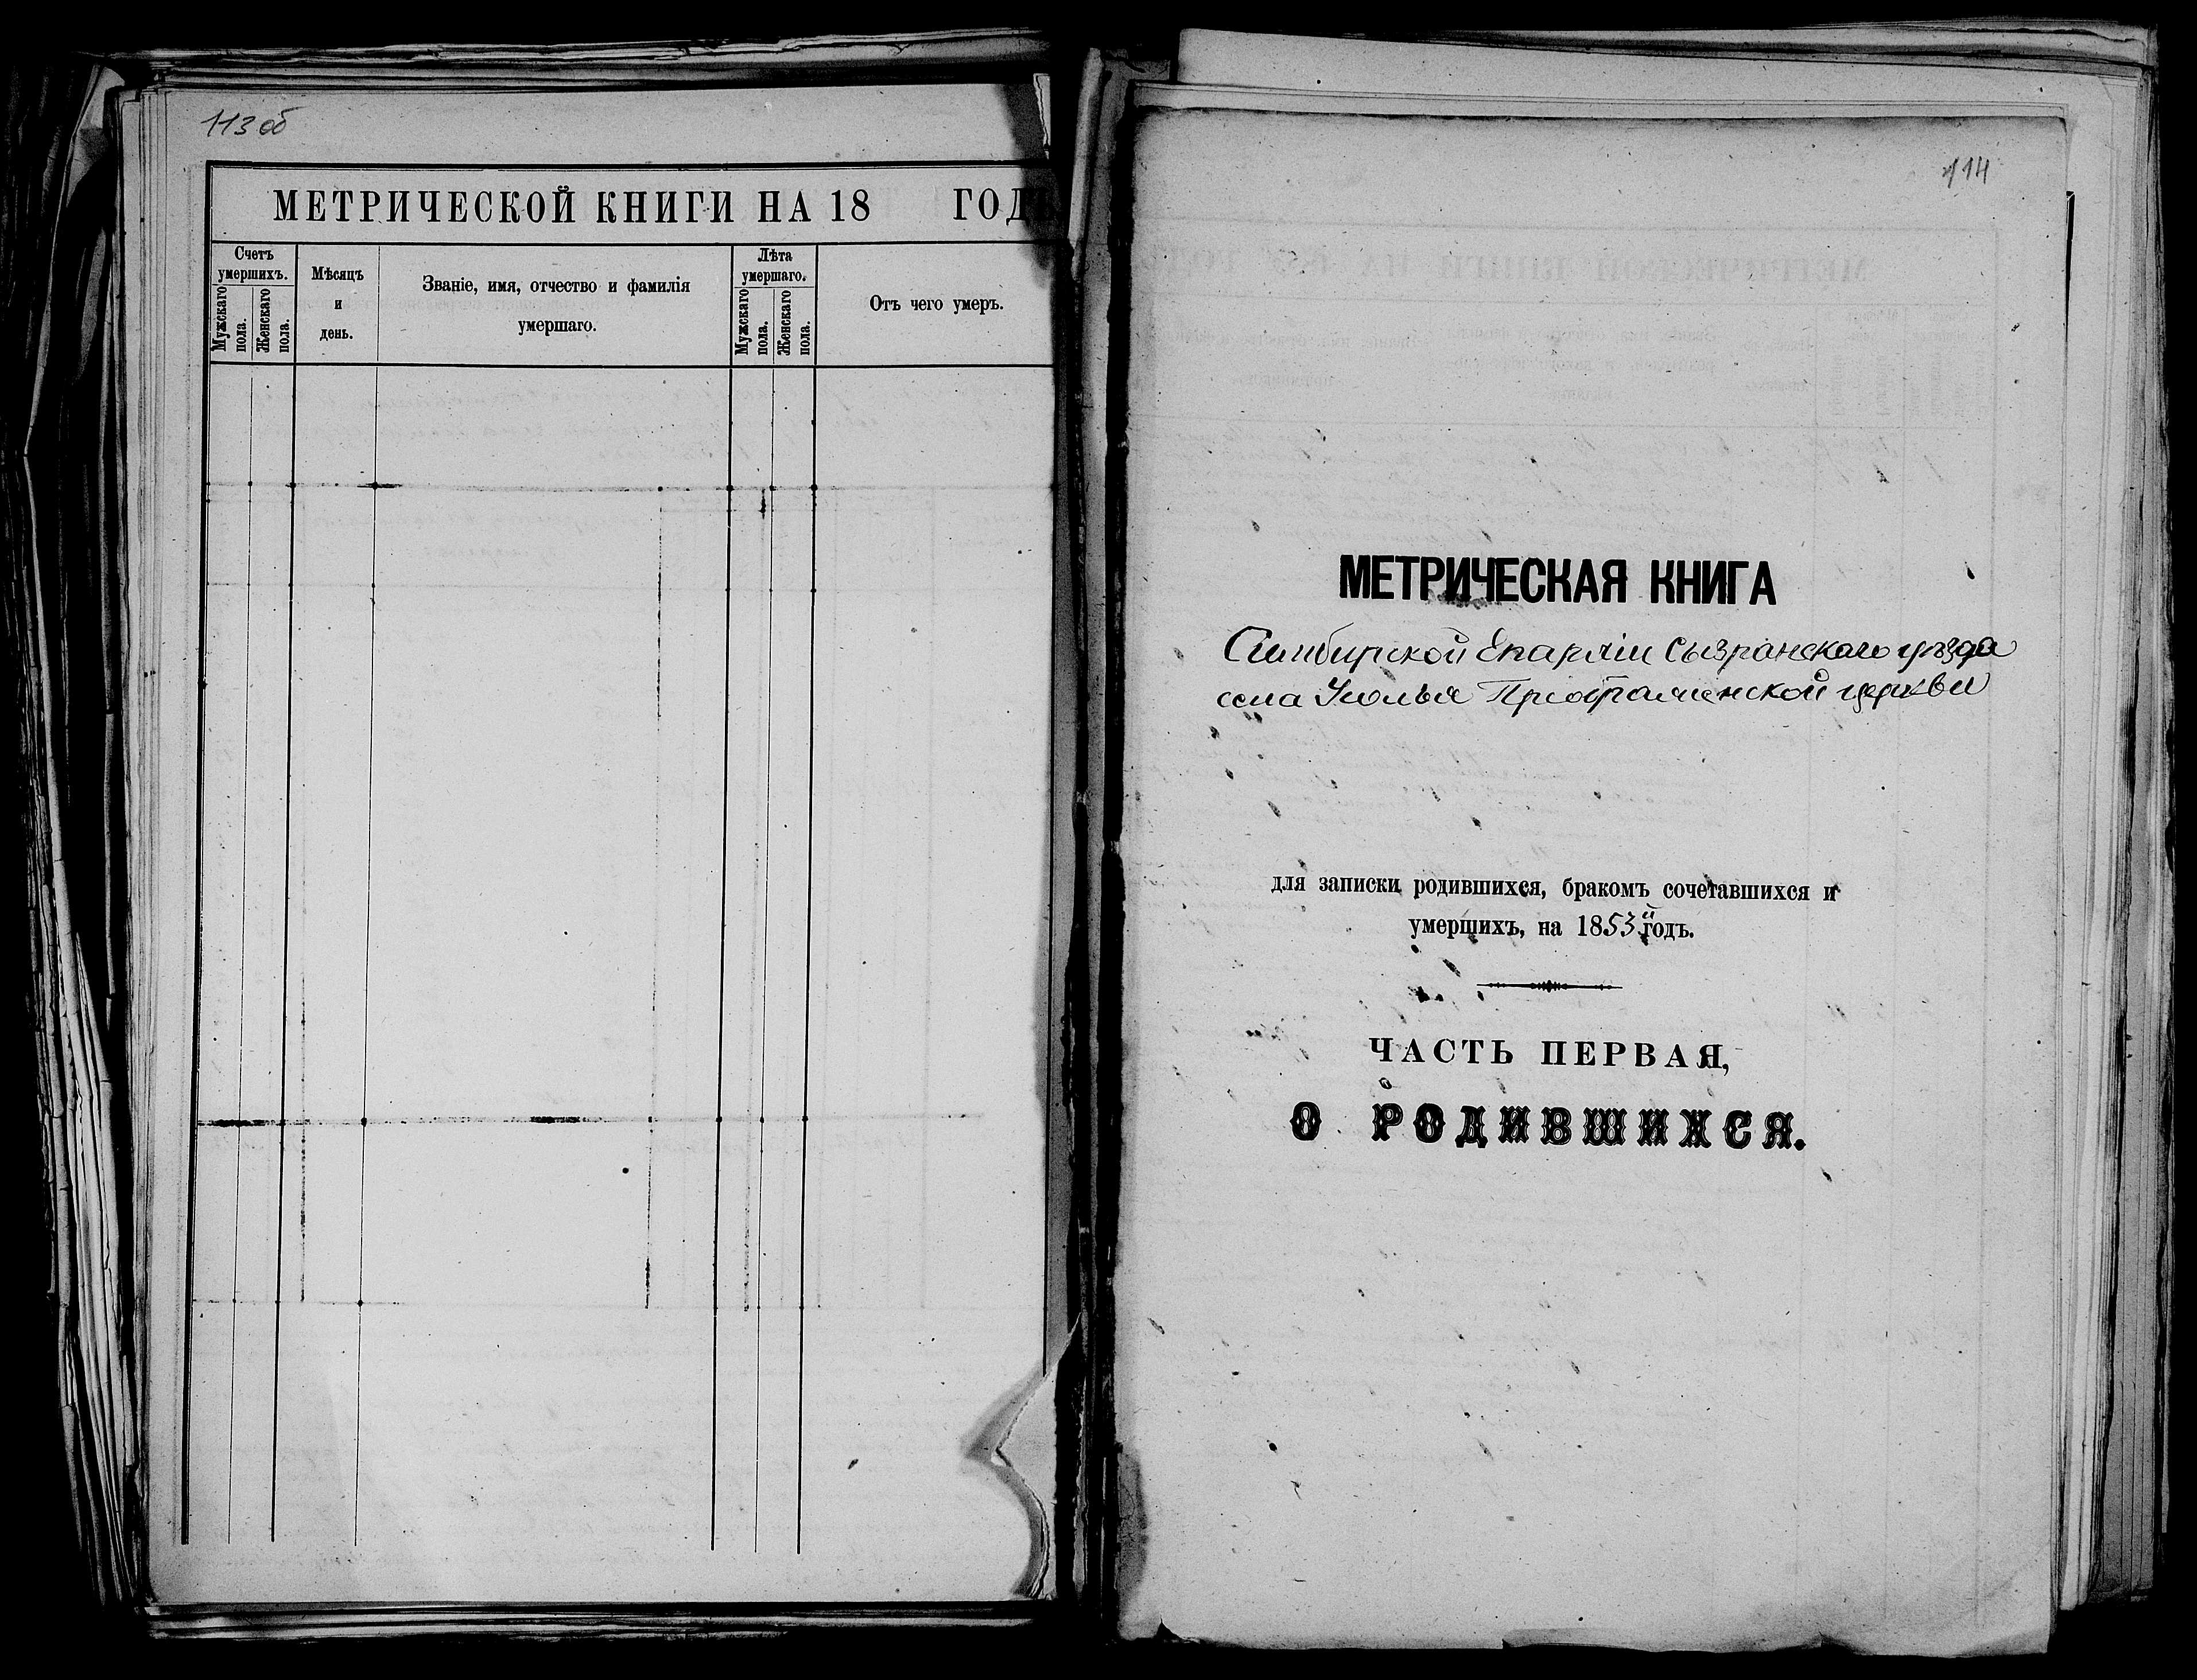 113 об
МЕТРИЧЕСКОЙ КНИГИ НА 18 ГОД
Счетъ умершихъ.
Мужскаго пола.
Женскаго пола.
Мѣсяцъ и день.
Званіе, имя, отчество и фамилія умершаго.
Лѣта умершаго.
Мужскаго пола.
Женскаго пола.
Отъ чего умеръ.
114
МЕТРИЧЕСКАЯ КНИГА
Симбирской Епархіи Сызранскаго уѣзда
села Усолья Преображенской церкви
для записки родившихся, бракомъ сочетавшихся и
умершихъ, на 1853й годъ.
ЧАСТЬ ПЕРВАЯ,
О РОДИВШИХСЯ.